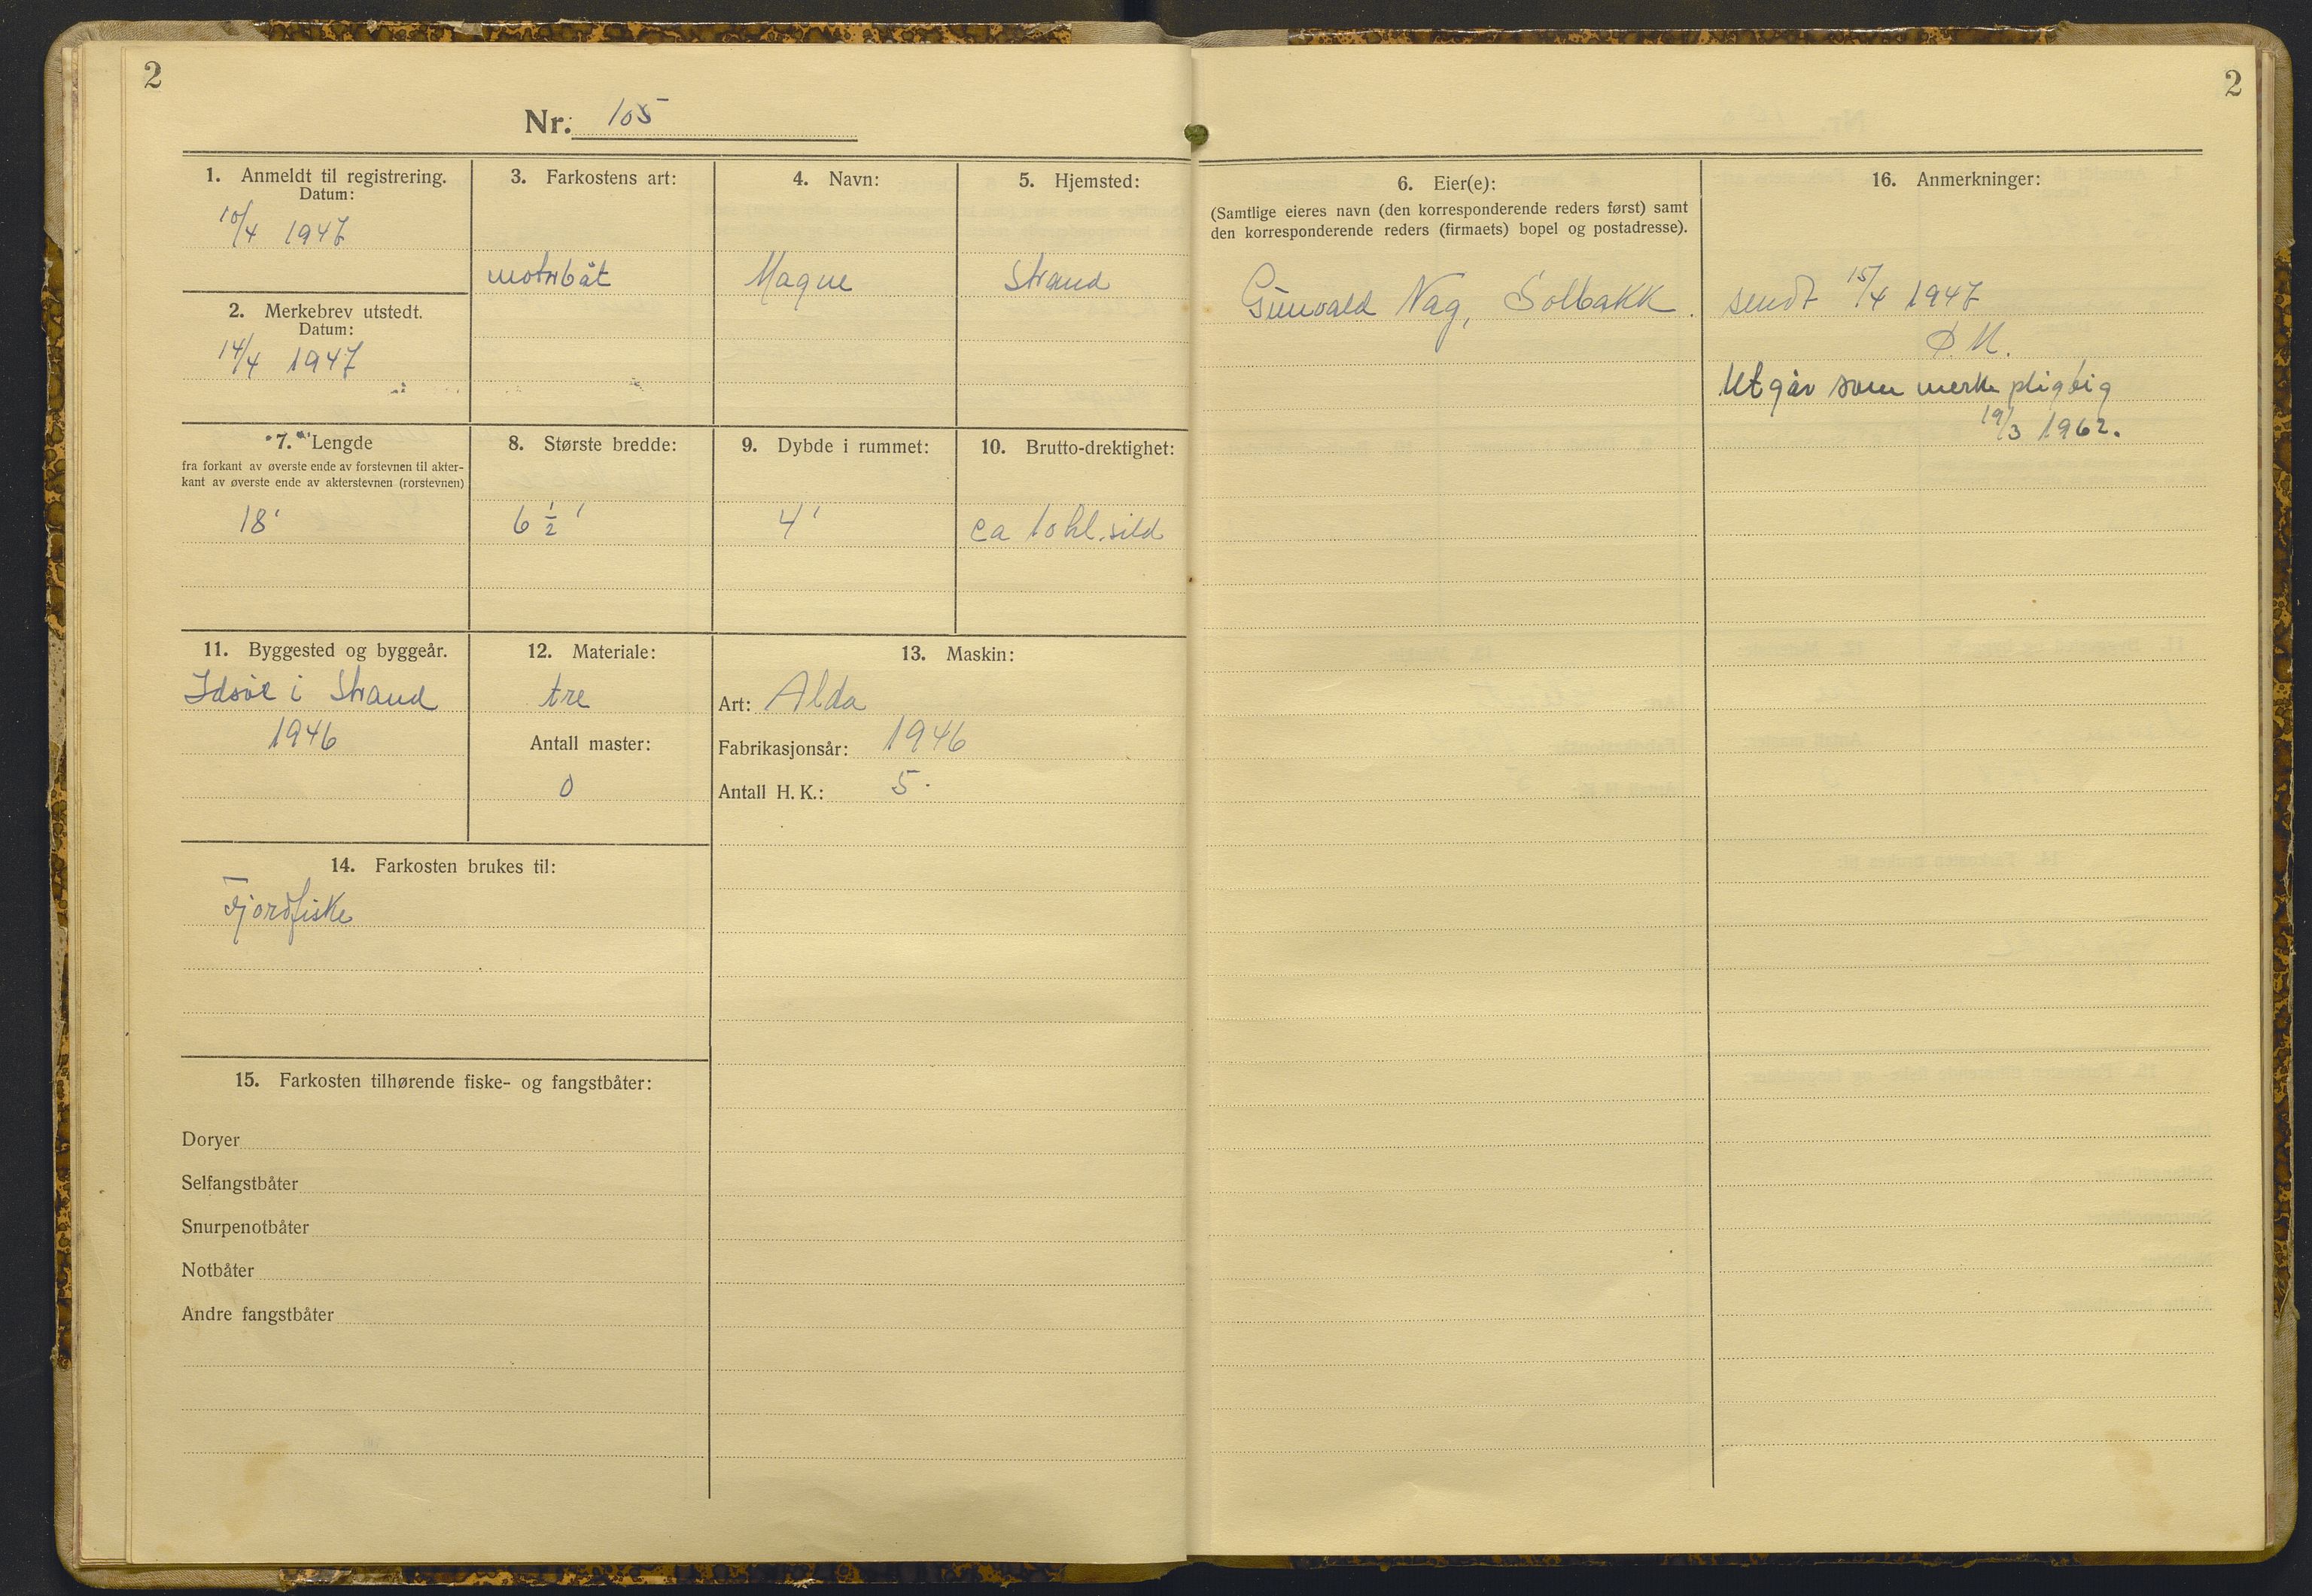 2
Nr. 105
1. Anmeldt til registrering.
Datum:
10/4 1947
2. Merkebrev utstedt.
Datum:
14/4 1947
3. Farkostens art:
motorbåt
4. Navn:
Magne
5. Hjemsted:
Strand
7. Lengde
fra forkant av øverste ende av forstevnen til akter-
kant av øverste ende av akterstevnen (rorstevnen)
18'
8. Største bredde:
6 1/2 '
9. Dybde i rummet:
4'
10. Brutto-drektighet:
ca 10 hl. sild
11. Byggested og byggeår.
Idsøe i Strand
1946
12. Materiale:
tre
Antall master:
0
13. Maskin:
Art: Alda
Fabrikasjonsår: 1946
Antall H. K.: 5.
14. Farkosten brukes til:
Fjordfiske
15. Farkosten tilhørende fiske- og fangstbåter:
Doryer
Selfangstbåter
Snurpenotbåter
Notbåter
Andre fangstbåter
2
6. Eier(e):
(Samtlige eieres navn (den korresponderende reders først) samt
den korresponderende reders (firmaets) bopel og postadresse).
Gunvald Nag, Solbakk.
16. Anmerkninger:
sendt 15/4 1947
Ø.M.
Utgår som merkepligtig
19/3 1962.